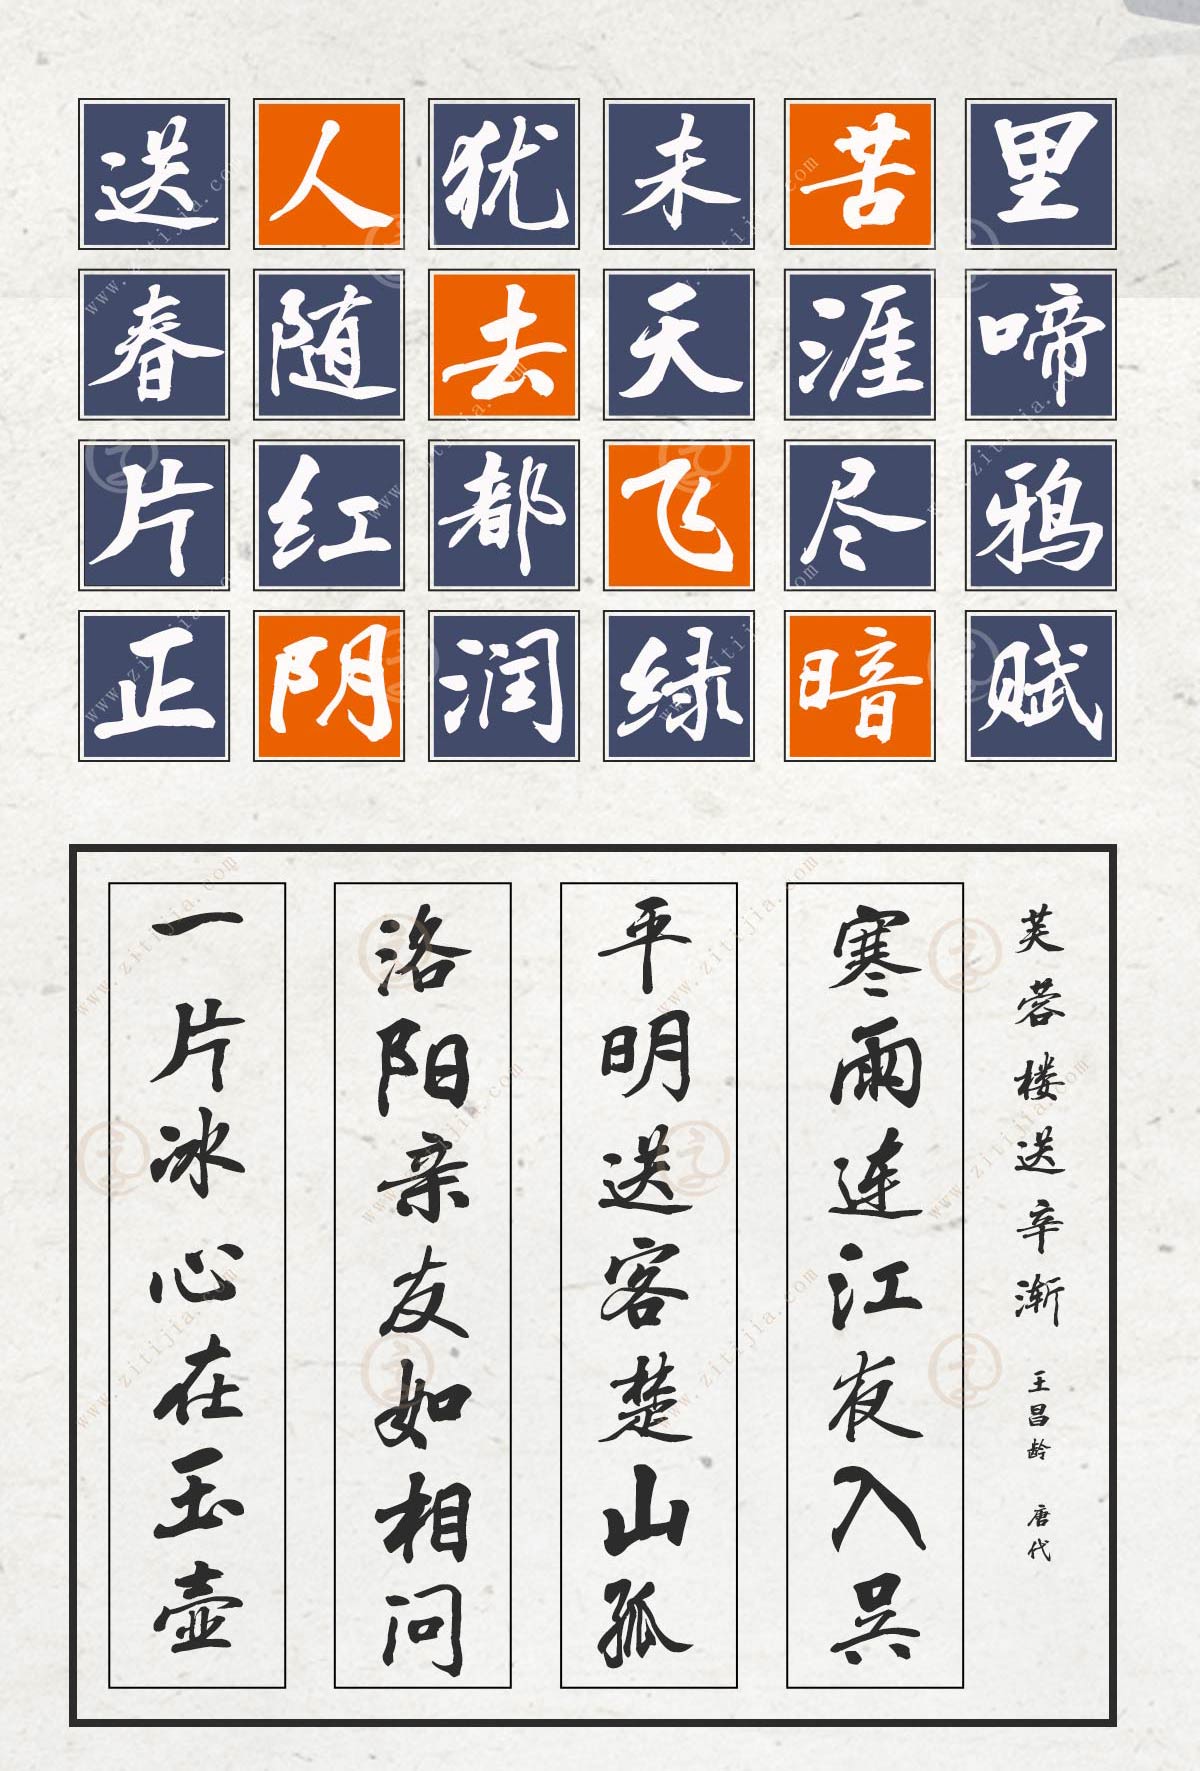 送人犹未苦里
春随去天涯啼
片红都飞尽鸦
正阴润绿暗赋
芙蓉楼送辛渐 王昌龄 唐代
寒雨连江夜入吴
平明送客楚山孤
洛阳亲友如相问
一片冰心在玉壶
www.zitijia.com